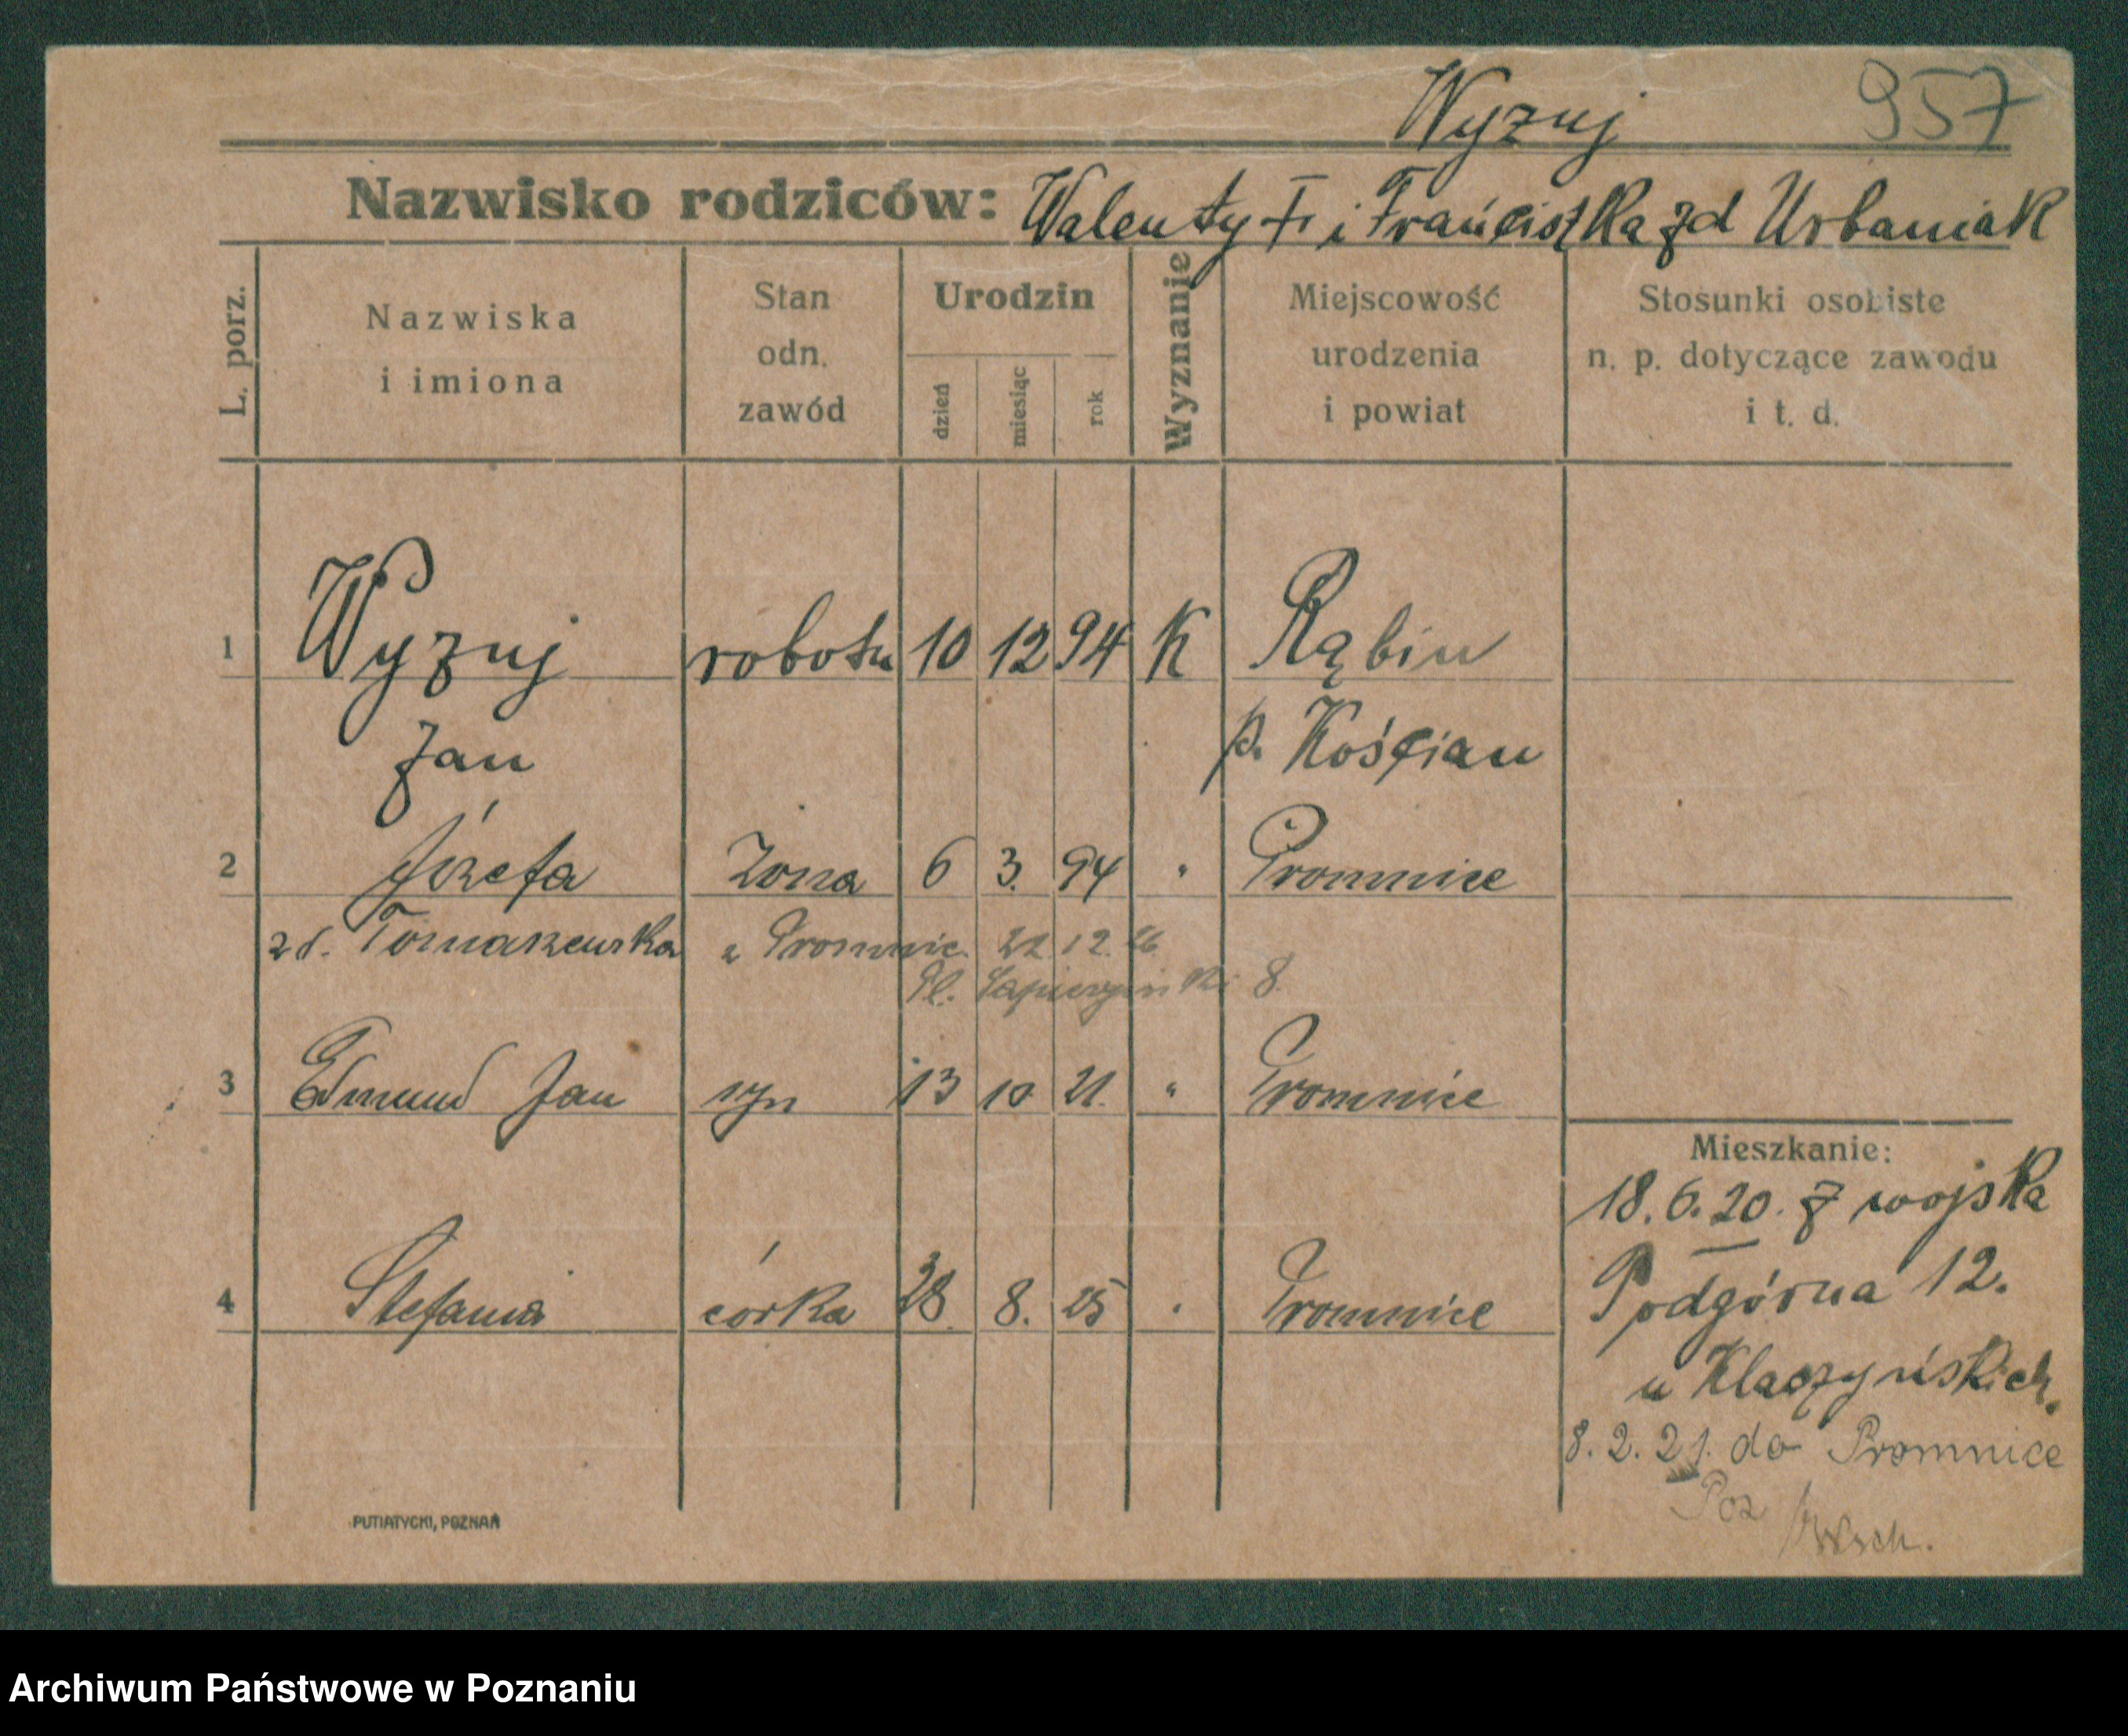 Wyzuj 957
Nazwisko rodziców: Walenty + i Franciszka zd Urbaniak
L. porz. Nazwiska i imiona Stan odn. zawód Urodzin dzień miesiąc rok Wyznanie Miejscowość urodzenia i powiat Stosunki osobiste n. p. dotyczące zawodu i t. d.
1 Wyzuj robotn 10 12 94 K Rąbin
Jan p. Kościan
2 Józefa żona 6 3. 94 " Promnice
zd. Tomaszewska z Promnic. 22.12.26
Pl. Sapieżyński 8.
3 Edmund Jan syn 13 10 21. " Promnice
Mieszkanie:
18.6.20. z wojska
4 Stefania córka 28. 8. 25 " Promnice
Podgórna 12.
u Klaczyńskich.
8.2.21. do Promnice
Poz Wsch.
PUTIATYCKI, POZNAŃ
Archiwum Państwowe w Poznaniu